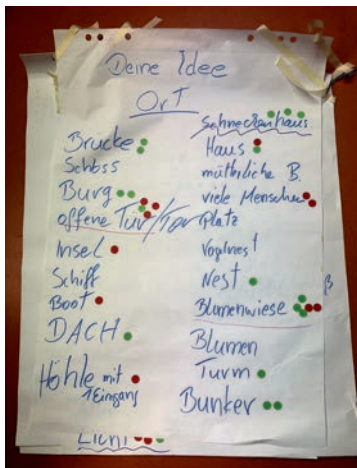 Deine Idee
Ort
Brücke
Schloss
Burg
offene Tür/Tor
Insel
Schiff
Boot
DACH
Höhle mit
1 Eingang
Licht
Schneckenhaus
Haus
mütterliche B.
viele Menschen
Platz
Vogelnest
Nest
Blumenwiese
Blumen
Turm
Bunker